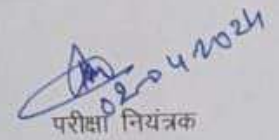 02.04.2024
परीक्षा नियंत्रक